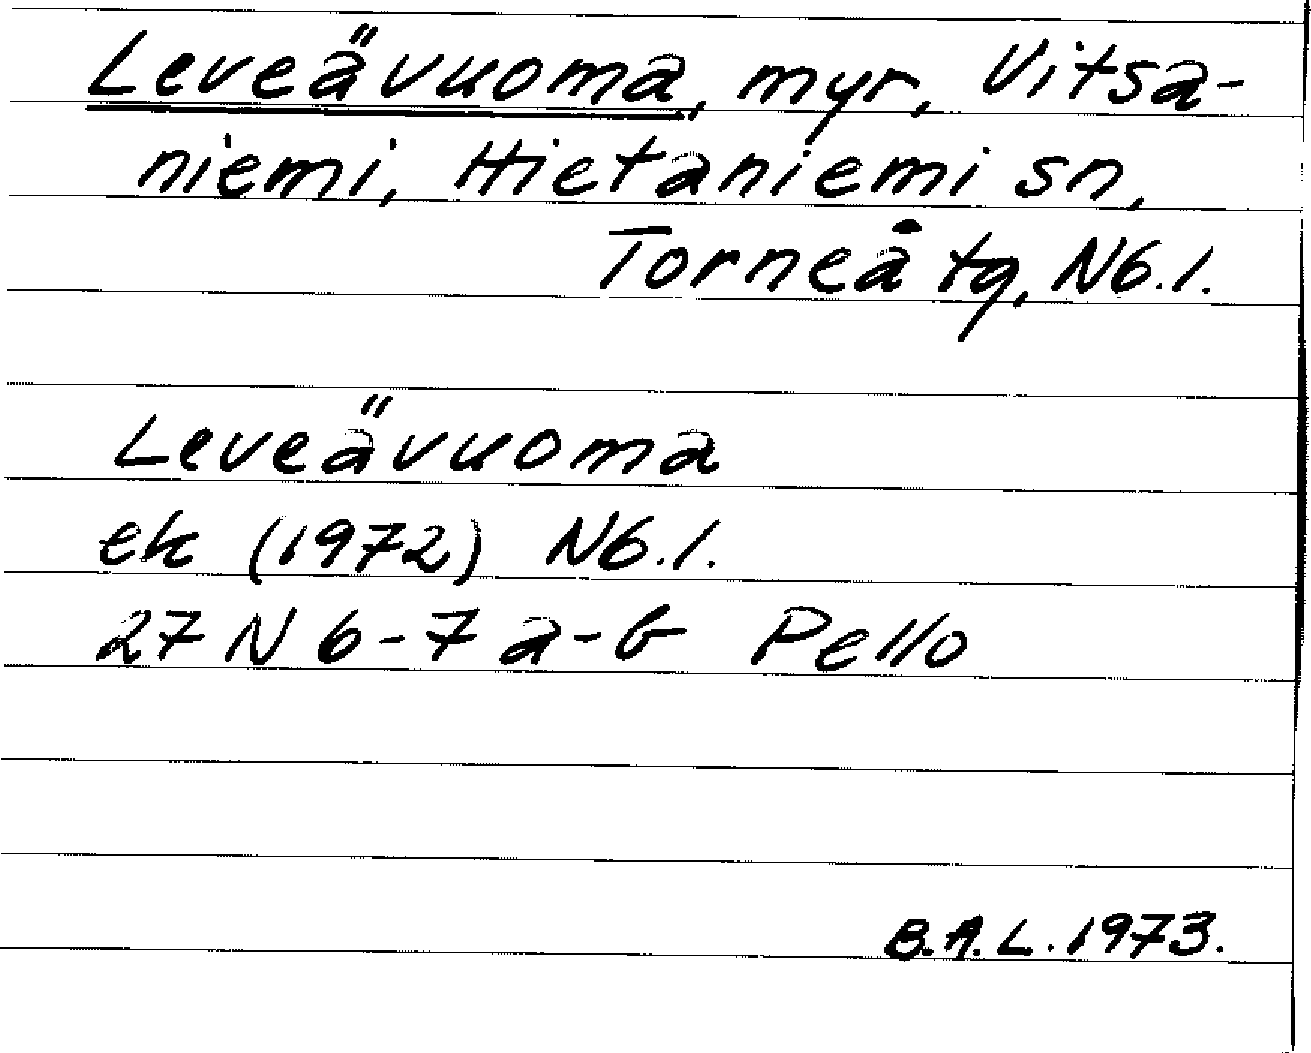 Leveävuoma, myr, Vitsa-
niemi, Hietaniemi sn,
Torneå tg, Nb.l.
Leveävuoma
ek (1972) Nb.l.
27 N 6-7 a-b Pello
B.A.L. 1973.